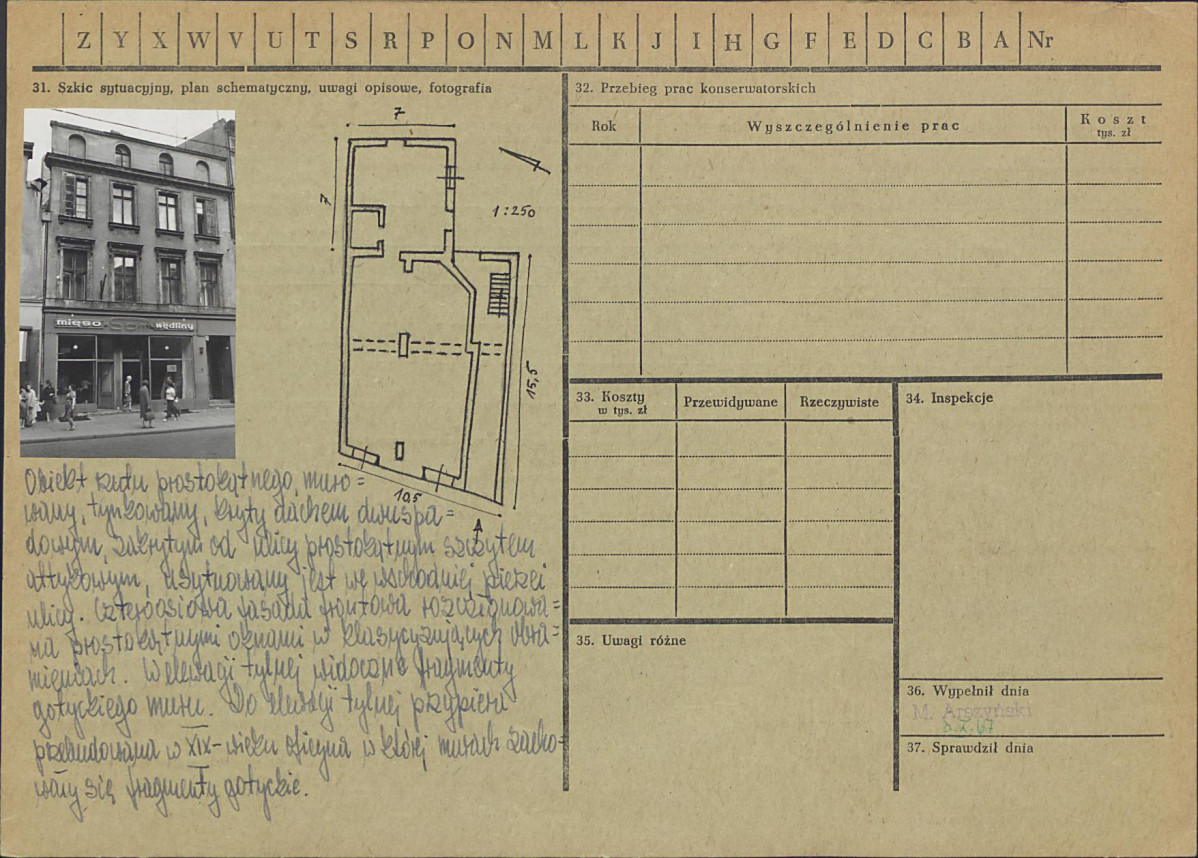 Z Y X W V U T S R P O N M L K J I H G F E D C B A Nr
31. Szkic sytuacyjny, plan schematyczny, uwagi opisowe, fotografia
mięso wędliny
7
7
1:250
15,5
10,5
Obiekt rzutu prostokątnego, muro=
wany, tynkowany, kryty dachem dwuspa=
dowym, zakrytym od ulicy prostokątnym szczytem
attykowym, usytuowany jest we wschodniej pierzei
ulicy. Czteroosiowa fasada frontowa rozczłonkowa=
na prostokątnymi oknami w klasycyzujących obra=
mieniach. W elewacji tylnej widoczne fragmenty
gotyckiego muru. Do elewacji tylnej przypiera
przebudowana w XIX-wieku oficyna w której murach zacho-
wały się fragmenty gotyckie.
32. Przebieg prac konserwatorskich
Rok Wyszczególnienie prac Koszt
tys. zł
33. Koszty
w tys. zł
Przewidywane Rzeczywiste
34. Inspekcje
35. Uwagi różne
36. Wypełnił dnia
M. Arszyński
37. Sprawdził dnia